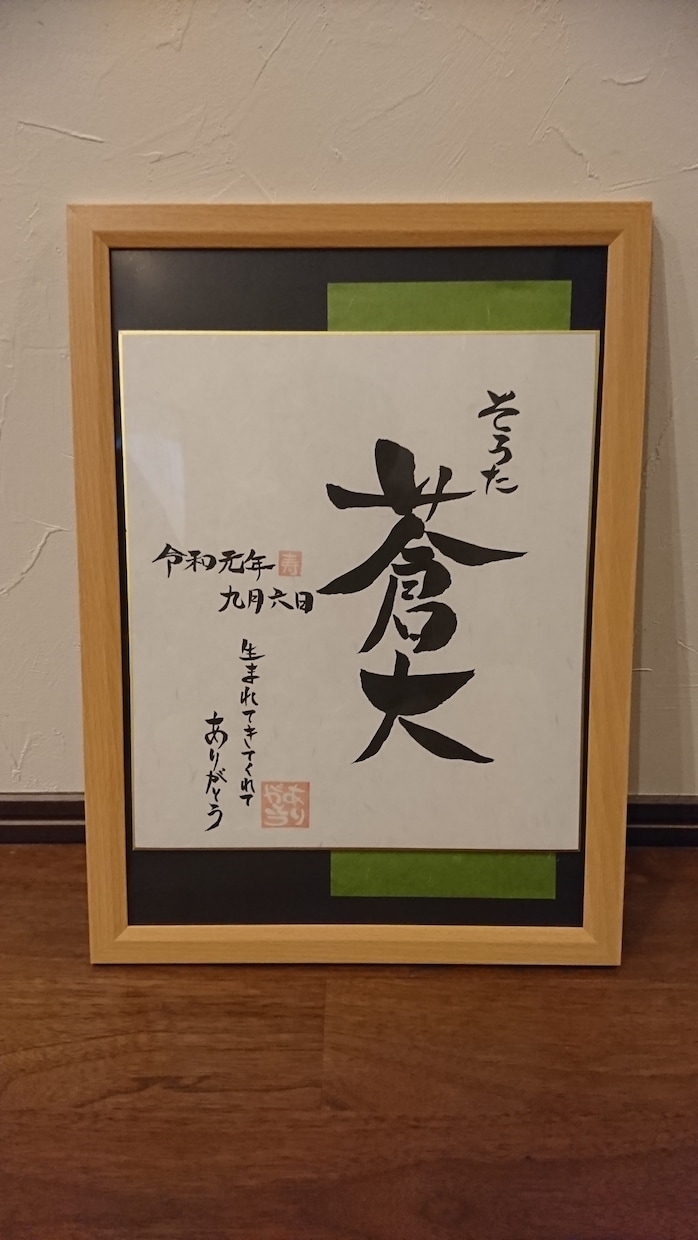 そうた
蒼大
令和元年
寿
九月六日
生まれてきてくれて
ありがとう